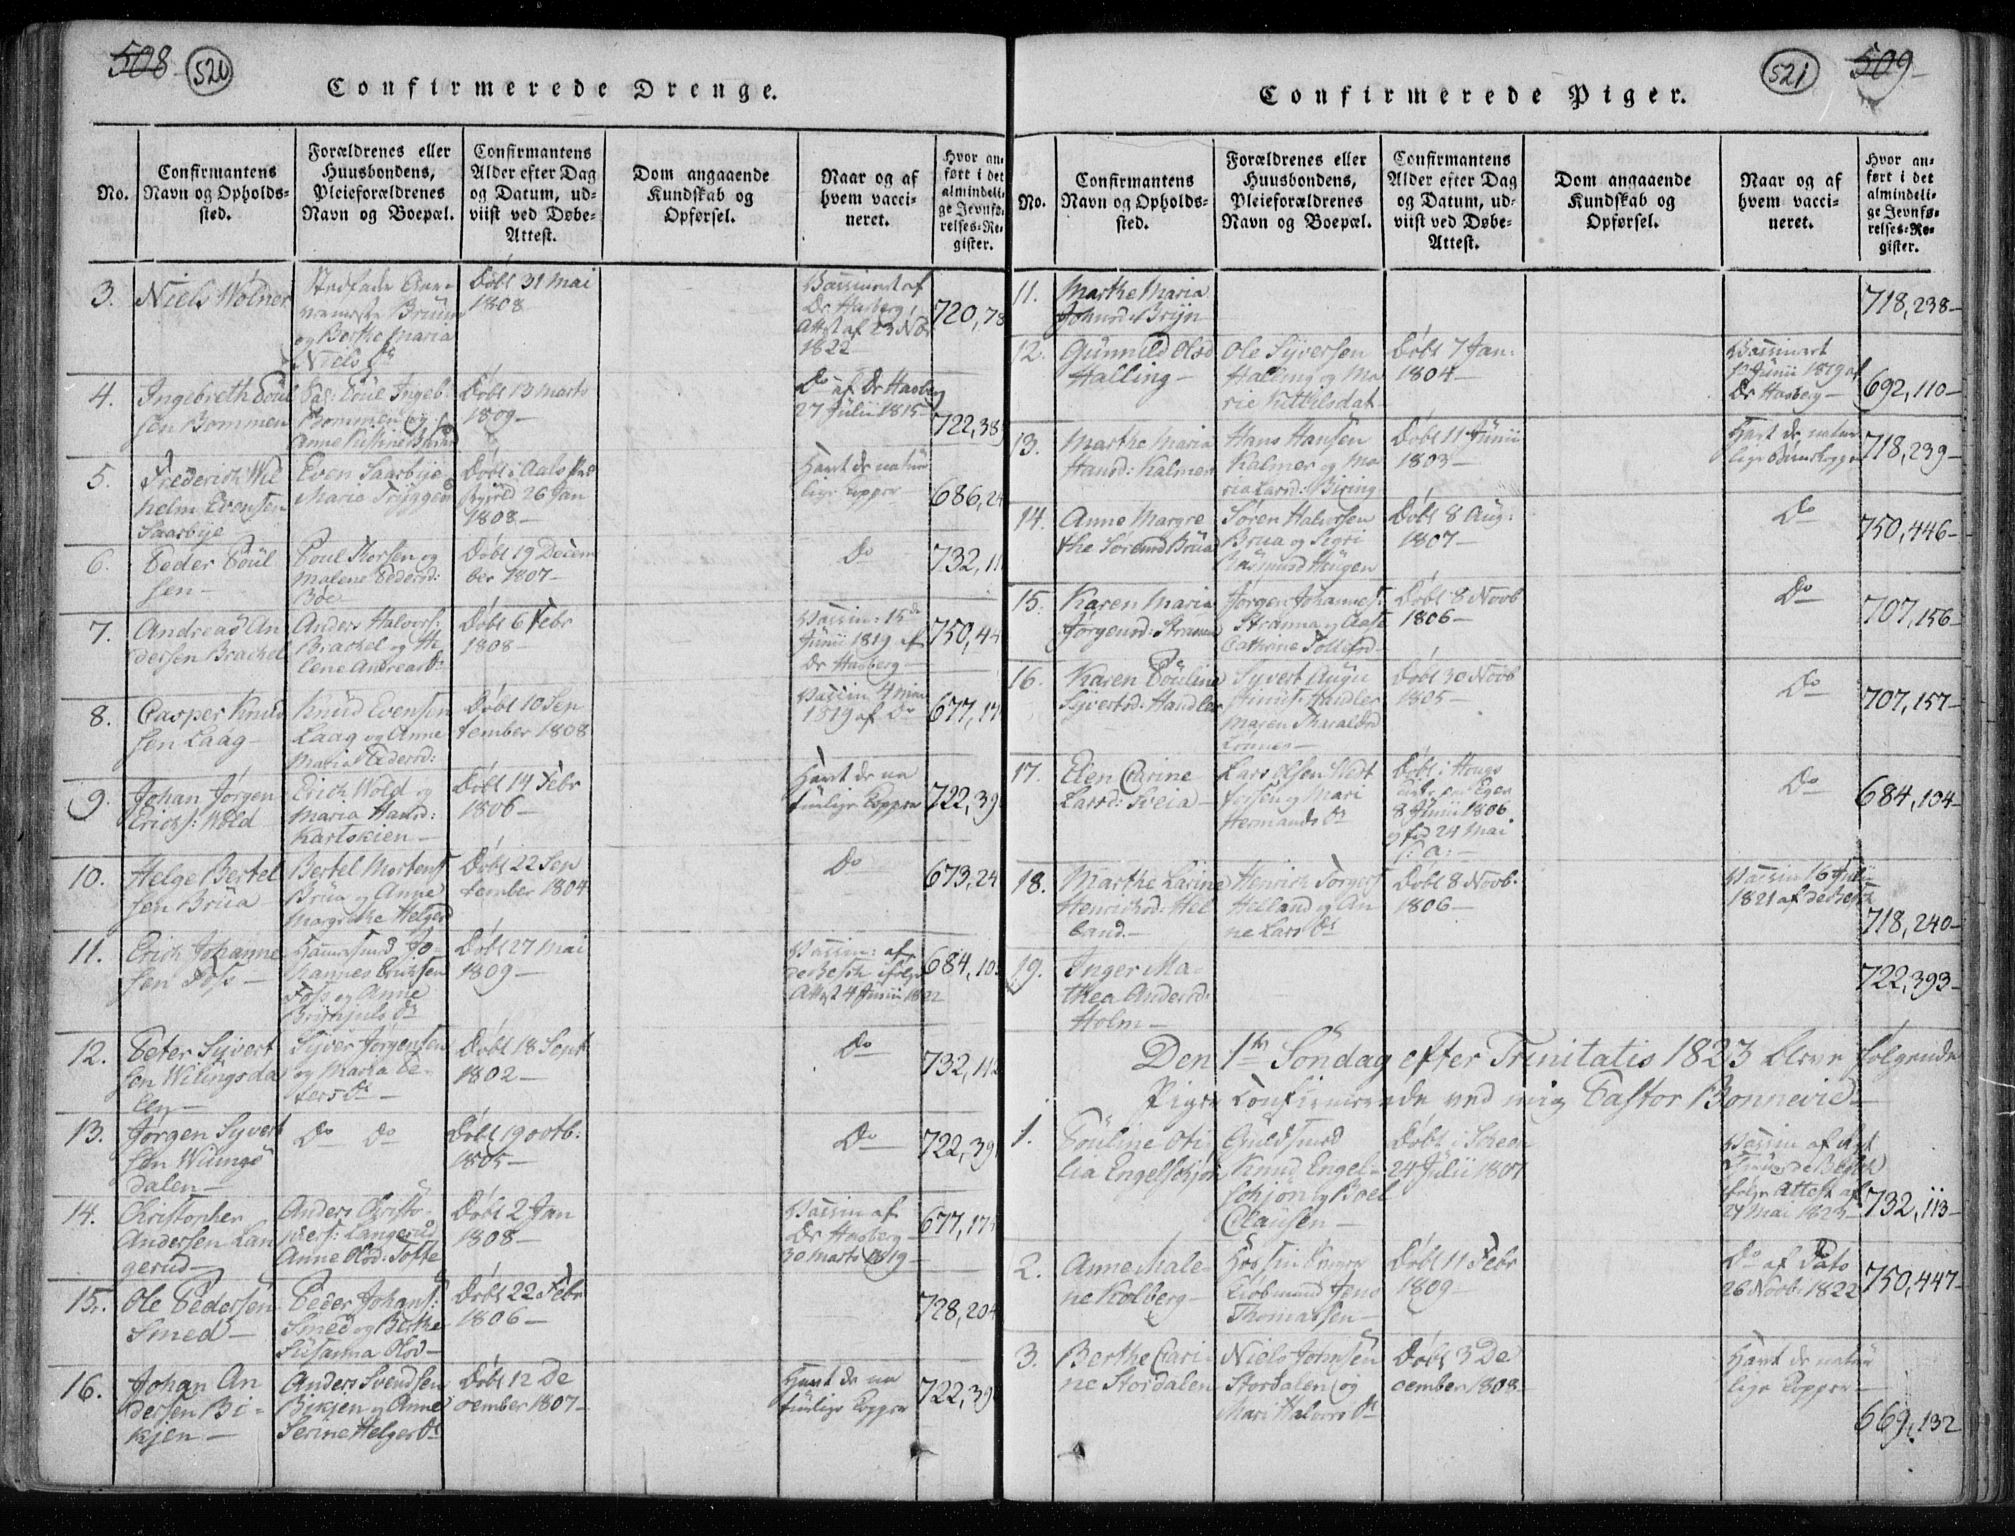 508
520
Confirmerede Drenge.
No.
Confirmantens
Navn og Opholds-
sted.
Forældrenes eller
Huusbondens,
Pleieforældrenes
Navn og Boepæl.
Confirmantens
Alder efter Dag
og Datum, ud-
viist ved Døbe-
Attest.
Dom angaaende
Kundskab og
Opførsel.
Naar og af
hvem vacci-
neret.
Hvor an-
ført i det
almindeli-
ge Jevnfø-
relses-Re-
gister.
3.
Niels Wølner
og Berthe Maria
Niels Dr
Døbt 31 Mai
1808
Vassineret af
Dr Hasberg
Attest af 23 Nov
1822
720,78
4.
Ingebreth Poül
sen Bommen
Døbt 13 Marts
1809
Do af Dr Hasberg
27 Julii 1815
722,38
5.
Frederich Wil
helm Evensen
Saarbye
Even Saarbye
Marie Tryggen
26 Jan
1808
Havt de natür
lige Kopper
686,24
6.
Peder Poül
sen
Poul Thorsen og
Malene Pedersd:
Boe
Døbt 19 Decem
ber 1807
Do
732,11
7.
Andreas An
dersen Brachel
Anders Halvors:
Brachel og He
lene Andreasdr:
Døbt 6 Febr
1808
Vassin: 15de
Junii 1819 af
Dr Hasberg
750,44
8.
Casper Knud
sen Laag
Knud Evensen
Laag og Anne
Maria Pedersd:
Døbt 10 Sep
tember 1808
Vassin 4 Mai
1819 af Do
677,17
9.
Johan Jørgen
Erichs: Wold
Erich Wold og
Maria Hansd:
Karlskien
Døbt 14 Febr
1806
Havt de na
türlige Kopper
722,39
10.
Helge Bertel
sen Brüa
Bertel Mortens
Brüa og Anne
Margrethe Helgesd
Døbt 22 Sep
tember 1804
Do
673,24
11.
Erich Johanne
sen Foss
Jo-
hannes Erichsen
Foss og Anne
Døbt 27 Mai
1809
Vassin: af
Attest 4 Junii 1822
684,10
12.
Peter Syvert
sen Wilingsda
len
Syver Jørgensen
og Maria Pe-
ters Dr
Døbt 18 Sept
1802
Do
732,112
13.
Jørgen Syvert
sen Wilings
dalen
Do Do
Døbt 19 Octb:
1805
Do
722,39
14.
Christopher
Andersen Lan
gerud
Anders Christo-
phers: Langerud
Anne Olsd: Tofte
Døbt 2 Jan
1808
Vassin af
Dr Hasberg
30 Marts 1819
677,17
15.
Ole Pedersen
Smed
Peder Johans:
Smed og Berthe
Susanna Olsd
Døbt 22 Febr
1806
728,204
16.
Johan An
dersen Bi-
kjen
Anders Svendsen
Bikjen og Anne
Serine Helges Dr
Døbt 12 De
cember 1807
Havt de na
türlige Kopper
722,39
521
509
Confirmerede Piger.
No.
Confirmantens
Navn og Opholds-
sted.
Forældrenes eller
Huusbondens,
Pleieforældrenes
Navn og Boepæl.
Confirmantens
Alder efter Dag
og Datum, ud-
viist ved Døbe-
Attest.
Dom angaaende
Kundskab og
Opførsel.
Naar og af
hvem vacci-
neret.
Hvor an-
ført i det
almindeli-
ge Jevnfø-
relses-Re-
gister.
11.
Marthe Maria
Johnsd: Bryn
718,238
12.
Gunnild Olsd
Halling
Ole Syversen
Halling og Ma
rie Kittilsdat
Døbt 7 Jan:
1804
Vassineret
Junii 1819 af
Dr Hasberg
692,110
13.
Marthe Maria
Hansd: Kalmer
Hans Hansen
Kalmer og Ma
ria Larsd: Biring
Døbt 11 Junii
1803
Havt de natur
lige
718,239
14.
Anne Margre
the Sørensd Brüa
Søren Halvorsen
Brua og Sigri
Rasmusd Haugen
Døbt 8 Aug:
1807
Do
750,446
15.
Karen Maria
Jørgensd: Stranna
Jørgen Johannes:
Stranna og Aase
Cathrine Tollefsd
Døbt 8 Novb
1806
Do
707,156
16.
Karen Pouline
Syvertsd: Handler
Syvert Augu
stinus: Handler
Maren Tharaldsd
Døbt 30 Novb
1805
Do
707,157
17.
Elen Carine
Larsd: Sveia
Lars Olsen Vest
fossen og Mari
Hermands Dr
Døbt i Hougs
8 Junii 1806
24 Mai
Do
684,104
18.
Marthe Larine
Henrichsd: Hel
land
Henrich Torgers
Helland og An
ne Lars Dr
Døbt 8 Novb.
1806
Vassin 16 Juli
1821 af
718,240
19.
Inger Ma-
thea Andersd:
Holm
722,393
Den 1te Söndag efter Trinitatis 1823 bleve følgende
Piger Confirmerede ved mig Pastor Bonnevie
1.
Pouline Oti
lia Engelschjøn
Guldsmed
Knud Engel-
schjøn og Boel
Clausen
Døbt i Scheen
24 Julii 1807
Attest af
Mai 1823
732,113
2.
Anne Male-
ne Kolberg
Kiøbmand Jens
Thomassen
Døbt 11 Febr
1809
Do af Dato
26 Novb: 1822
750,447
3.
Berthe Cari-
ne Stordalen
Niels Johnsen
Stordalen og
Mari Halvors Dr
Døbt 3 De
cember 1808
Havt de natür
lige Kopper
669,132